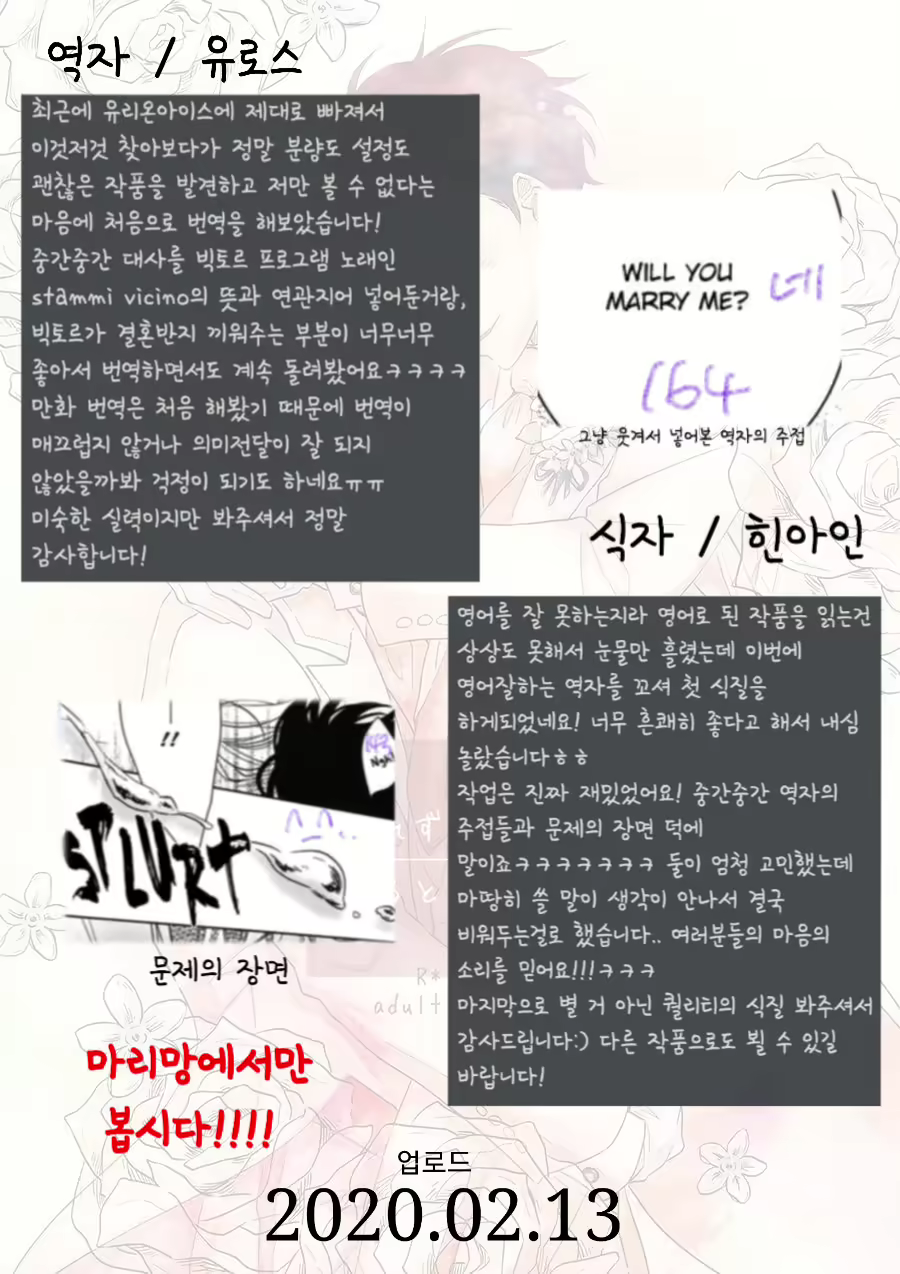 역자 / 유로스
최근에 유리온아이스에 제대로 빠져서
이것저것 찾아보다가 정말 분량도 설정도
괜찮은 작품을 발견하고 저만 볼 수 없다는
마음에 처음으로 번역을 해보았습니다!
중간중간 대사를 빅토르 프로그램 노래인
stammi vicino의 뜻과 연관지어 넣어둔거랑,
빅토르가 결혼반지 끼워주는 부분이 너무너무
좋아서 번역하면서도 계속 돌려봤어요ㅋㅋㅋㅋ
만화 번역은 처음 해봤기 때문에 번역이
매끄럽지 않거나 의미전달이 잘 되지
않았을까봐 걱정이 되기도 하네요ㅠㅠ
미숙한 실력이지만 봐주셔서 정말
감사합니다!
WILL YOU
MARRY ME?
네
164
그냥 웃겨서 넣어본 역자의 주접
식자 / 힌아인
영어를 잘 못하는지라 영어로 된 작품을 읽는건
상상도 못해서 눈물만 흘렸는데 이번에
영어잘하는 역자를 꼬셔 첫 식질을
하게되었네요! 너무 흔쾌히 좋다고 해서 내심
놀랐습니다ㅎㅎ
작업은 진짜 재밌었어요! 중간중간 역자의
주접들과 문제의 장면 덕에
말이죠ㅋㅋㅋㅋㅋㅋㅋ 둘이 엄청 고민했는데
마땅히 쓸 말이 생각이 안나서 결국
비워두는걸로 했습니다.. 여러분들의 마음의
소리를 믿어요!!!ㅋㅋㅋ
마지막으로 별 거 아닌 퀄리티의 식질 봐주셔서
감사드립니다:) 다른 작품으로도 뵐 수 있길
바랍니다!
!!
142
SLURT
^_^..
문제의 장면
ず
と
R*
adult
마리망에서만
봅시다!!!!
업로드
2020.02.13